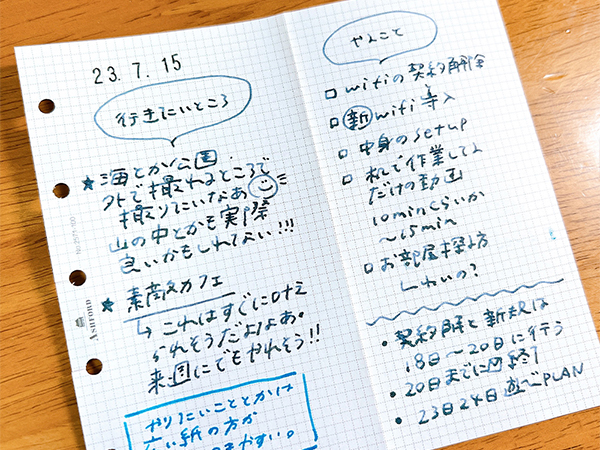 23.7.15
行きたいところ
★ 海とか公園
外で撮れるところで
撮りたいなぁ
山の中とかも実際
良いかもしれない!!!
★ 素敵カフェ
↳ これはすぐに
それそうだよなぁ。
来週にでもやれそう!!
やりたいこととかは
広い紙の方が
やすい。
ASHFORD
やること
□ wifiの契約解除
□ 新wifi導入
□ 中身のsetup
□ 机で作業してる
だけの動画
10minくらいか
〜15min
□ お部屋探し方
いいの?
・契約解除と新規は
18日〜20日に行う
・20日までに終了
・23日24日遊ぶPLAN